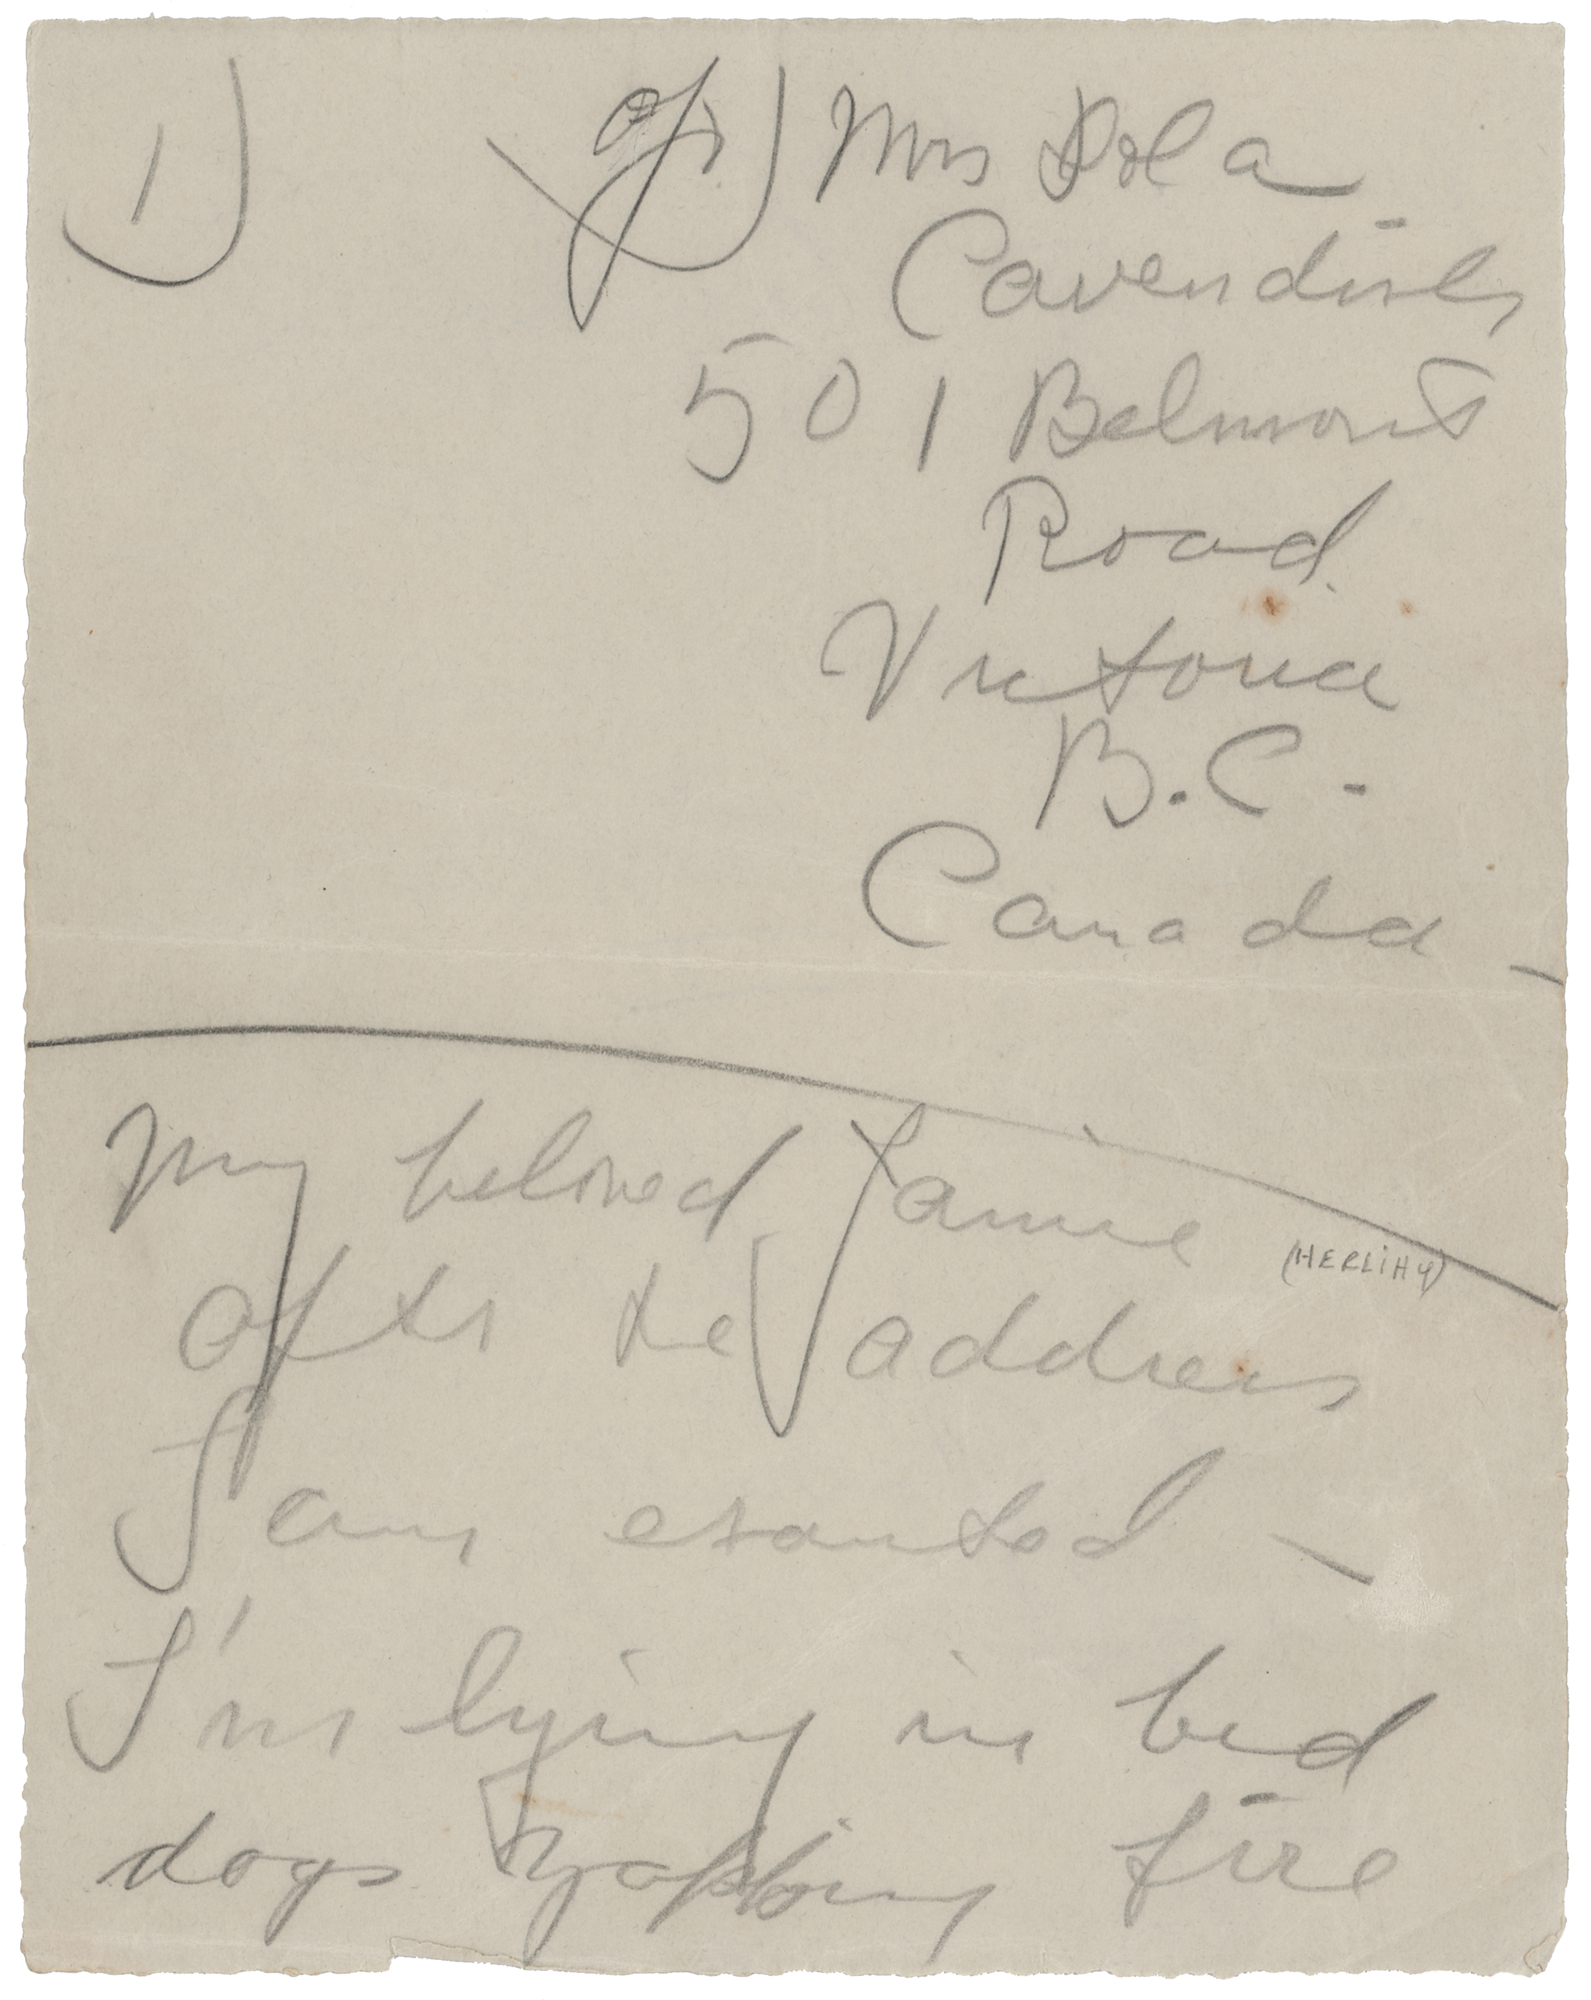 1) c/o) Mrs Dola
Cavendish
501 Belmont
Road
Victoria
B.C.
Canada -
My beloved Jamie
(HERLiHY)
after the address
I am exausted -
I'm lying in bed
dogs yapping fire